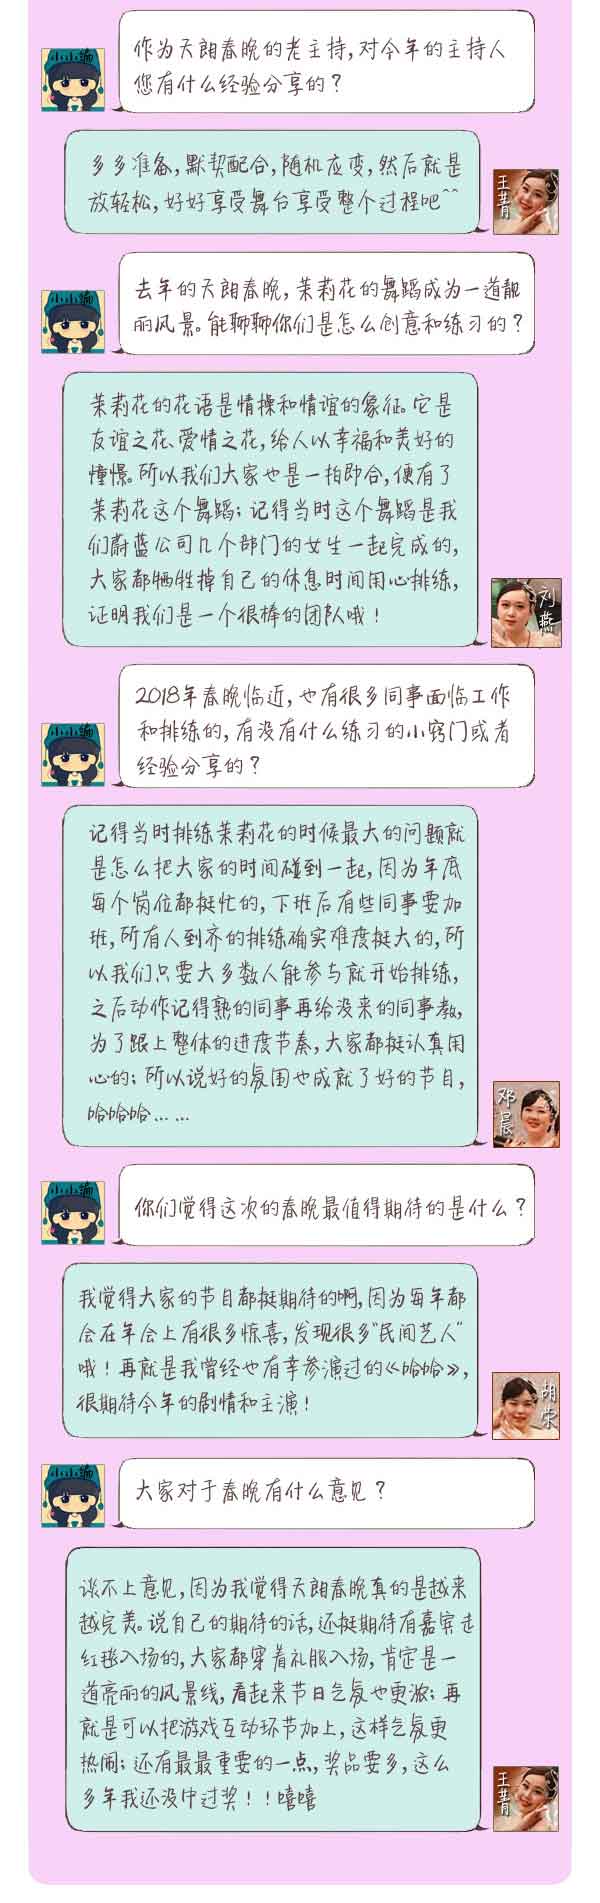 小小编
作为天朗春晚的老主持,对今年的主持人
您有什么经验分享的？
多多准备,默契配合,随机应变,然后就是
放轻松,好好享受舞台享受整个过程吧^^
王菁
小小编
去年的天朗春晚,茉莉花的舞蹈成为一道靓
丽风景。能聊聊你们是怎么创意和练习的？
茉莉花的花语是情操和情谊的象征。它是
友谊之花、爱情之花,给人以幸福和美好的
憧憬。所以我们大家也是一拍即合,便有了
茉莉花这个舞蹈；记得当时这个舞蹈是我
们蔚蓝公司几个部门的女生一起完成的,
大家都牺牲掉自己的休息时间用心排练,
证明我们是一个很棒的团队哦！
刘燕
小小编
2018年春晚临近,也有很多同事面临工作
和排练的,有没有什么练习的小窍门或者
经验分享的？
记得当时排练茉莉花的时候最大的问题就
是怎么把大家的时间碰到一起,因为年底
每个岗位都挺忙的,下班后有些同事要加
班,所有人到齐的排练确实难度挺大的,所
以我们只要大多数人能参与就开始排练,
之后动作记得熟的同事再给没来的同事教,
为了跟上整体的进度节奏,大家都挺认真用
心的；所以说好的氛围也成就了好的节目,
哈哈哈……
邓晨
小小编
你们觉得这次的春晚最值得期待的是什么？
我觉得大家的节目都挺期待的啊,因为每年都
会在年会上有很多惊喜,发现很多“民间艺人”
哦！再就是我曾经也有幸参演过的《哈哈》,
很期待今年的剧情和主演！
胡荣
小小编
大家对于春晚有什么意见？
谈不上意见,因为我觉得天朗春晚真的是越来
越完美。说自己的期待的话,还挺期待有嘉宾走
红毯入场的,大家都穿着礼服入场,肯定是一
道亮丽的风景线,看起来节日气氛也更浓；再
就是可以把游戏互动环节加上,这样气氛更
热闹；还有最最重要的一点,奖品要多,这么
多年我还没中过奖！！嘻嘻
王菁